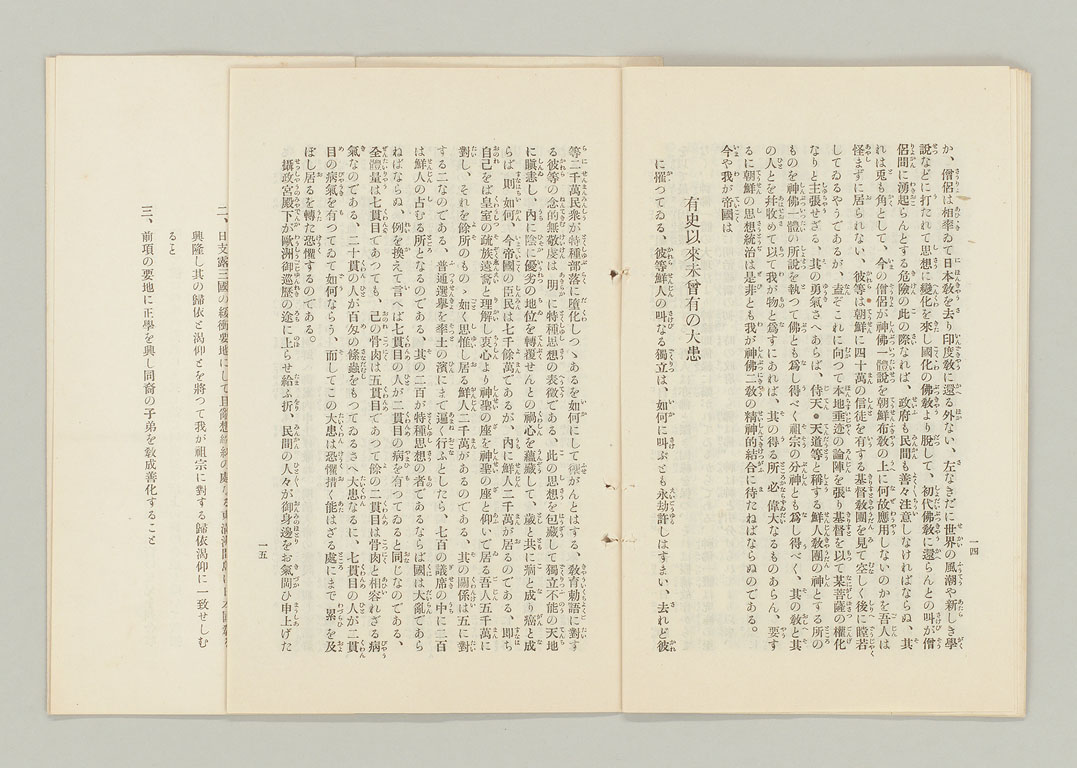 か、僧侶は相率ゐて日本敎を去り印度敎に還る外ない、左なきだに世界の風潮や新しき學
說などに打たれて思想に變化を來し國化の佛敎より脫して、初代佛敎に還らんとの叫が僧
侶間に湧起らんとする危險の此の際なれば、政府も民間も善々注意しなければならぬ、其
れは兎も角として、今の僧侶が神佛一體說を朝鮮布敎の上に何故應用しないのかを吾人は
怪まずに居られない、彼等は朝鮮に四十萬の信徒を有する基督敎團を見て空しく後に瞠若
してゐるやうであるが、盍ぞこれに向つて本地垂迹の論陣を張り基督を以て某菩薩の權化
なりと主張せざる、其の勇氣さへあらば、侍天・天道等と稱する鮮人敎團の神とする所の
ものを神佛一體の所說を執つて佛とも爲し得べく祖宗の分神とも爲し得べく、其の敎と其
の人とを幷收めて以て我が物と爲すにあれば、其の得る所必偉大なるものあらん、要す
るに朝鮮の思想統治は是非とも我が神佛二敎の精神的結合に待たねばならぬのである。
今や我が帝國は
有史以來未曾有の大患
に罹つてゐる、彼等鮮人の叫なる獨立は、如何に叫ぶとも永劫許しはすまい、去れど彼
一四
等二千萬民衆が特種部落に墮化しつゝあるを如何にして禦がんとはする、敎育勅語に對す
る彼等の念的無敬虔は明に特種思想の表徵である、此の思想を包藏して獨立不能の天地
に瞋恚し、內に陰に優劣の地位を轉覆せんとの禍心を蘊藏して、歲と共に病と成り癌と成
らば、則ち如何、今帝國の臣民は七千餘萬であるが、內に鮮人二千萬が居るのである、卽ち
自己をば皇室の疏族遠裔と理解し衷心より神聖の座を神聖の座と仰いで居る吾人五千萬に
對し、それを餘所のものゝ如く思惟し居る鮮人二千萬があるのである、其の關係は五に對
する二なのである、普通選擧を率土の濱にまで遍く行ふとしたら、七百の議席の中に二百
は鮮人の占むる所となるのである、其の二百が特種思想の者であるならば國は大亂であら
ねばならぬ、例を換えて言へば七貫目の人が二貫目の病を有つてゐると同じなのである、
全體量は七貫目であつても、己の骨肉は五貫目であつて餘の二貫目は骨肉と相容れざる病
氣なのである、二十貫の人が百匁の絛蟲をもつてゐるさへ大患なるに、七貫目の人が二貫
目の病氣を有つてゐて如何ならう、而してこの大患は恐懼措く能はざる處にまで累を及
ぼし居る轉た恐懼するのである。
攝政宮殿下が歐洲御巡歷の途に上らせ給ふ折、民間の人々が御身邊をお氣間ひ申上げた
一五
興隆し其の歸依と渴仰とを將つて我が祖宗に對する歸依渴仰に一致せしむ
ること
三、前項の要地に正學を興し同裔の子弟を敎成善化すること